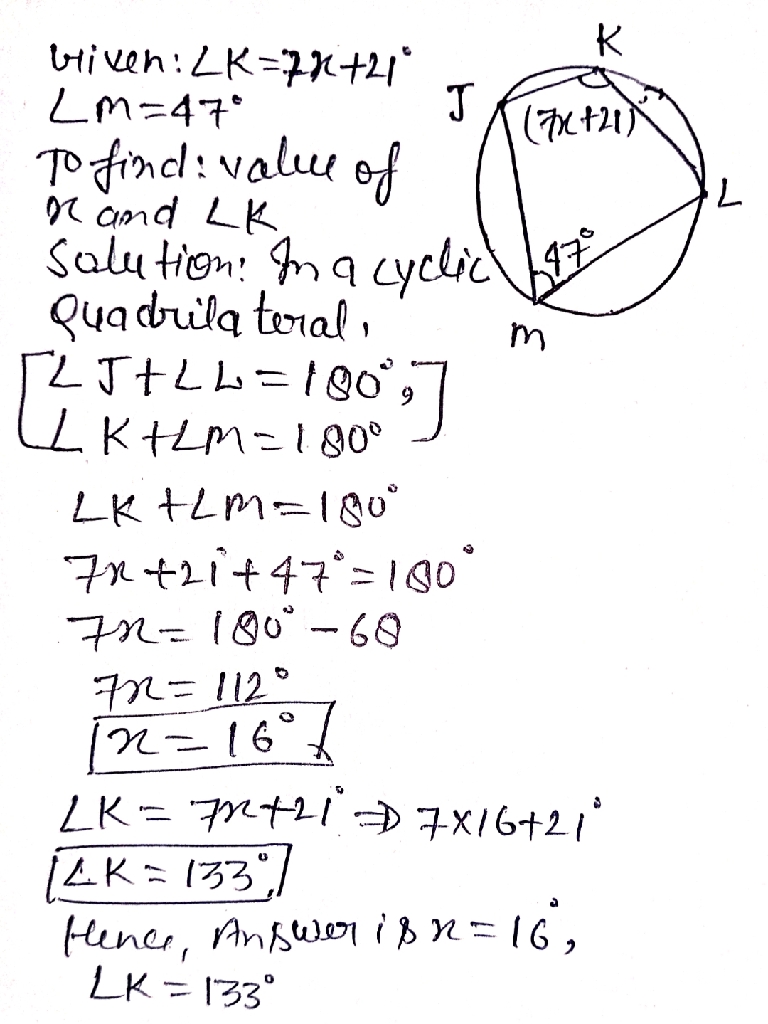 Given: ∠K=7x+21°
∠M=47°
To find: value of
x and ∠K
Solution: In a cyclic
Quadrilateral,
[∠J+∠L=180°,
∠K+∠M=180°]
∠K+∠M=180°
7x+21°+47°=180°
7x=180°-68
7x=112°
x=16°
∠K=7x+21° ⇒ 7×16+21°
∠K=133°
Hence, Answer is x=16°,
∠K=133°
K
J
(7x+21)
L
47°
M